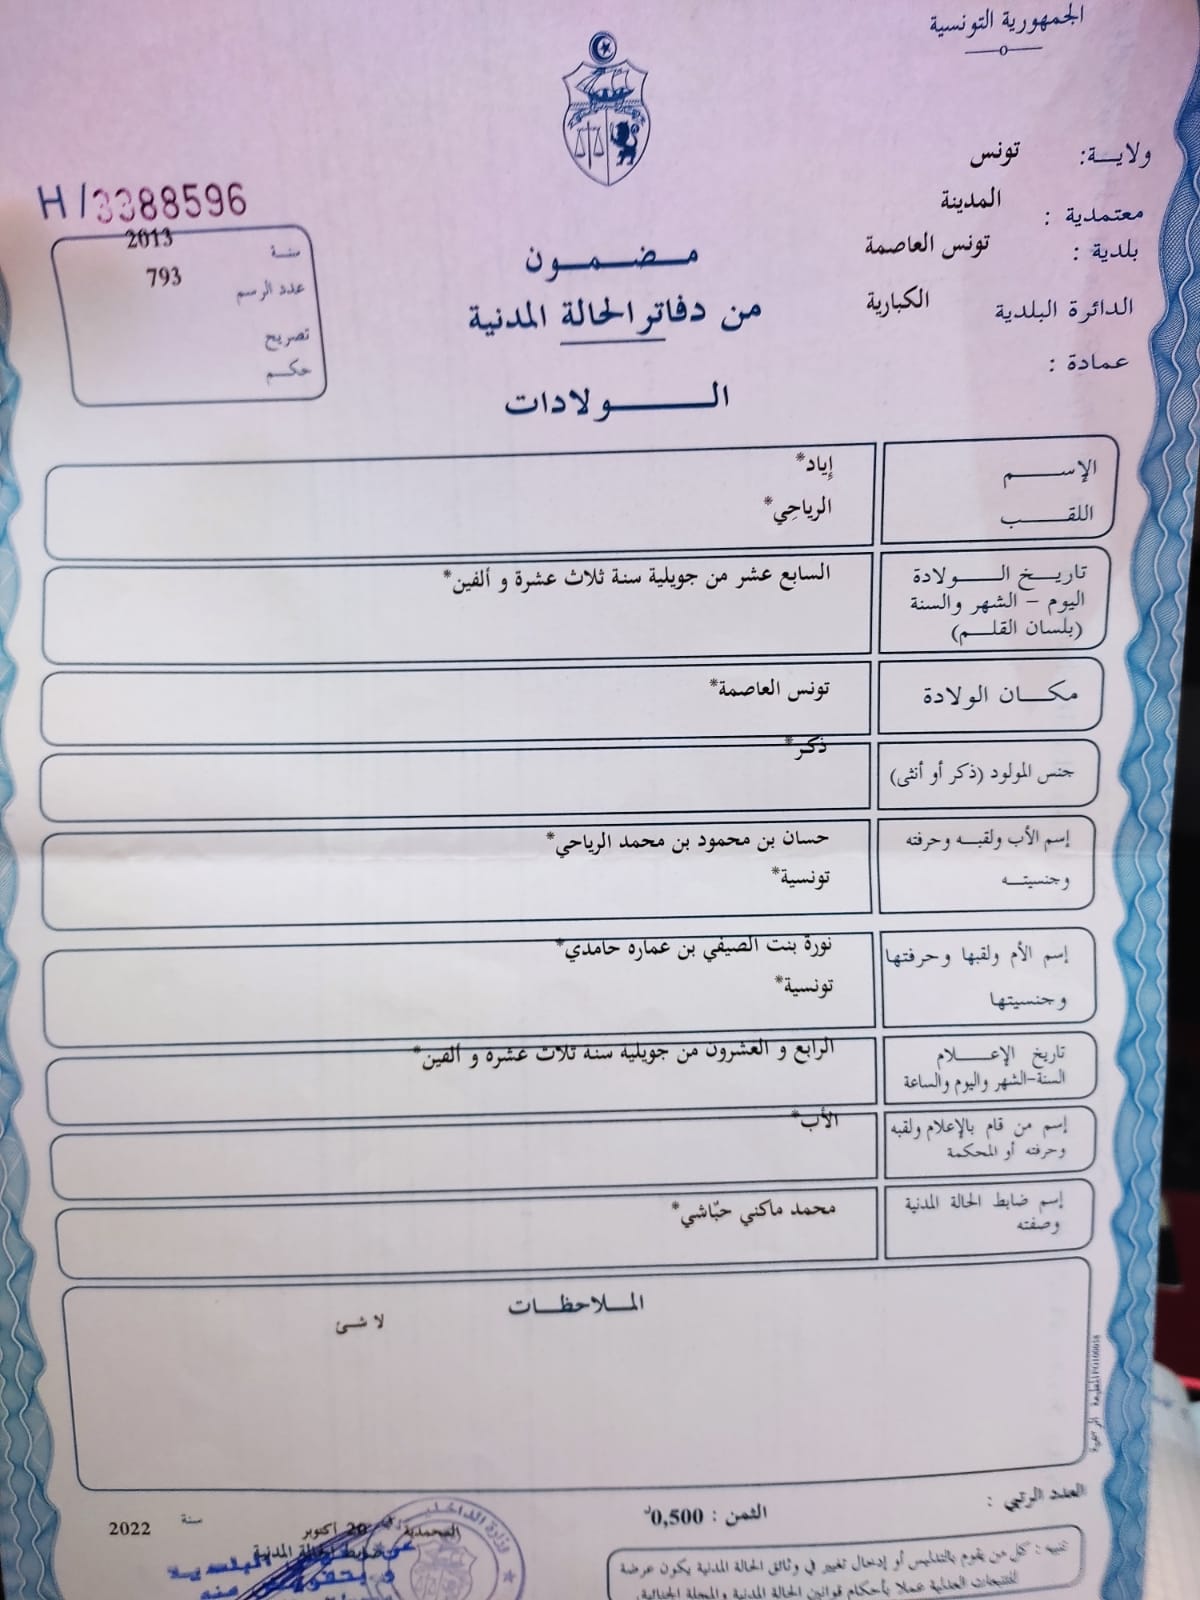 الجمهورية التونسية
ولاية: تونس
معتمدية : المدينة
بلدية : تونس العاصمة
الدائرة البلدية الكبارية
عمادة :
H/3388596
سنة 2013
عدد الرسم 793
تصريح
حكم
مضمون
من دفاتر الحالة المدنية
الولادات
الإسم إياد*
اللقب الرياحِي*
تاريخ الولادة السابع عشر من جويلية سنة ثلاث عشرة و ألفين*
اليوم - الشهر والسنة
(بلسان القلم)
مكان الولادة تونس العاصمة*
جنس المولود (ذكر أو أنثى) ذكر*
إسم الأب ولقبه وحرفته حسان بن محمود بن محمد الرياحي*
وجنسيته تونسية*
إسم الأم ولقبها وحرفتها نورة بنت الصيفي بن عماره حامدي*
وجنسيتها تونسية*
تاريخ الإعلام الرابع و العشرون من جويلية سنة ثلاث عشرة و ألفين*
السنة-الشهر واليوم والساعة
إسم من قام بالإعلام ولقبه الأب*
وحرفته أو المحكمة
إسم ضابط الحالة المدنية محمد ماكني حبّاشي*
وصفته
الملاحظات
لا شئ
العدد الرتبي :
الثمن : 0,500د
المحمدية في 20 أكتوبر سنة 2022
ضابط الحالة المدنية
وزارة الداخلية
تنبيه : كل من يقوم بالتدليس أو إدخال تغيير في وثائق الحالة المدنية يكون عرضة
للتتبعات العدلية عملا بأحكام قوانين الحالة المدنية والمجلة الجنائية.